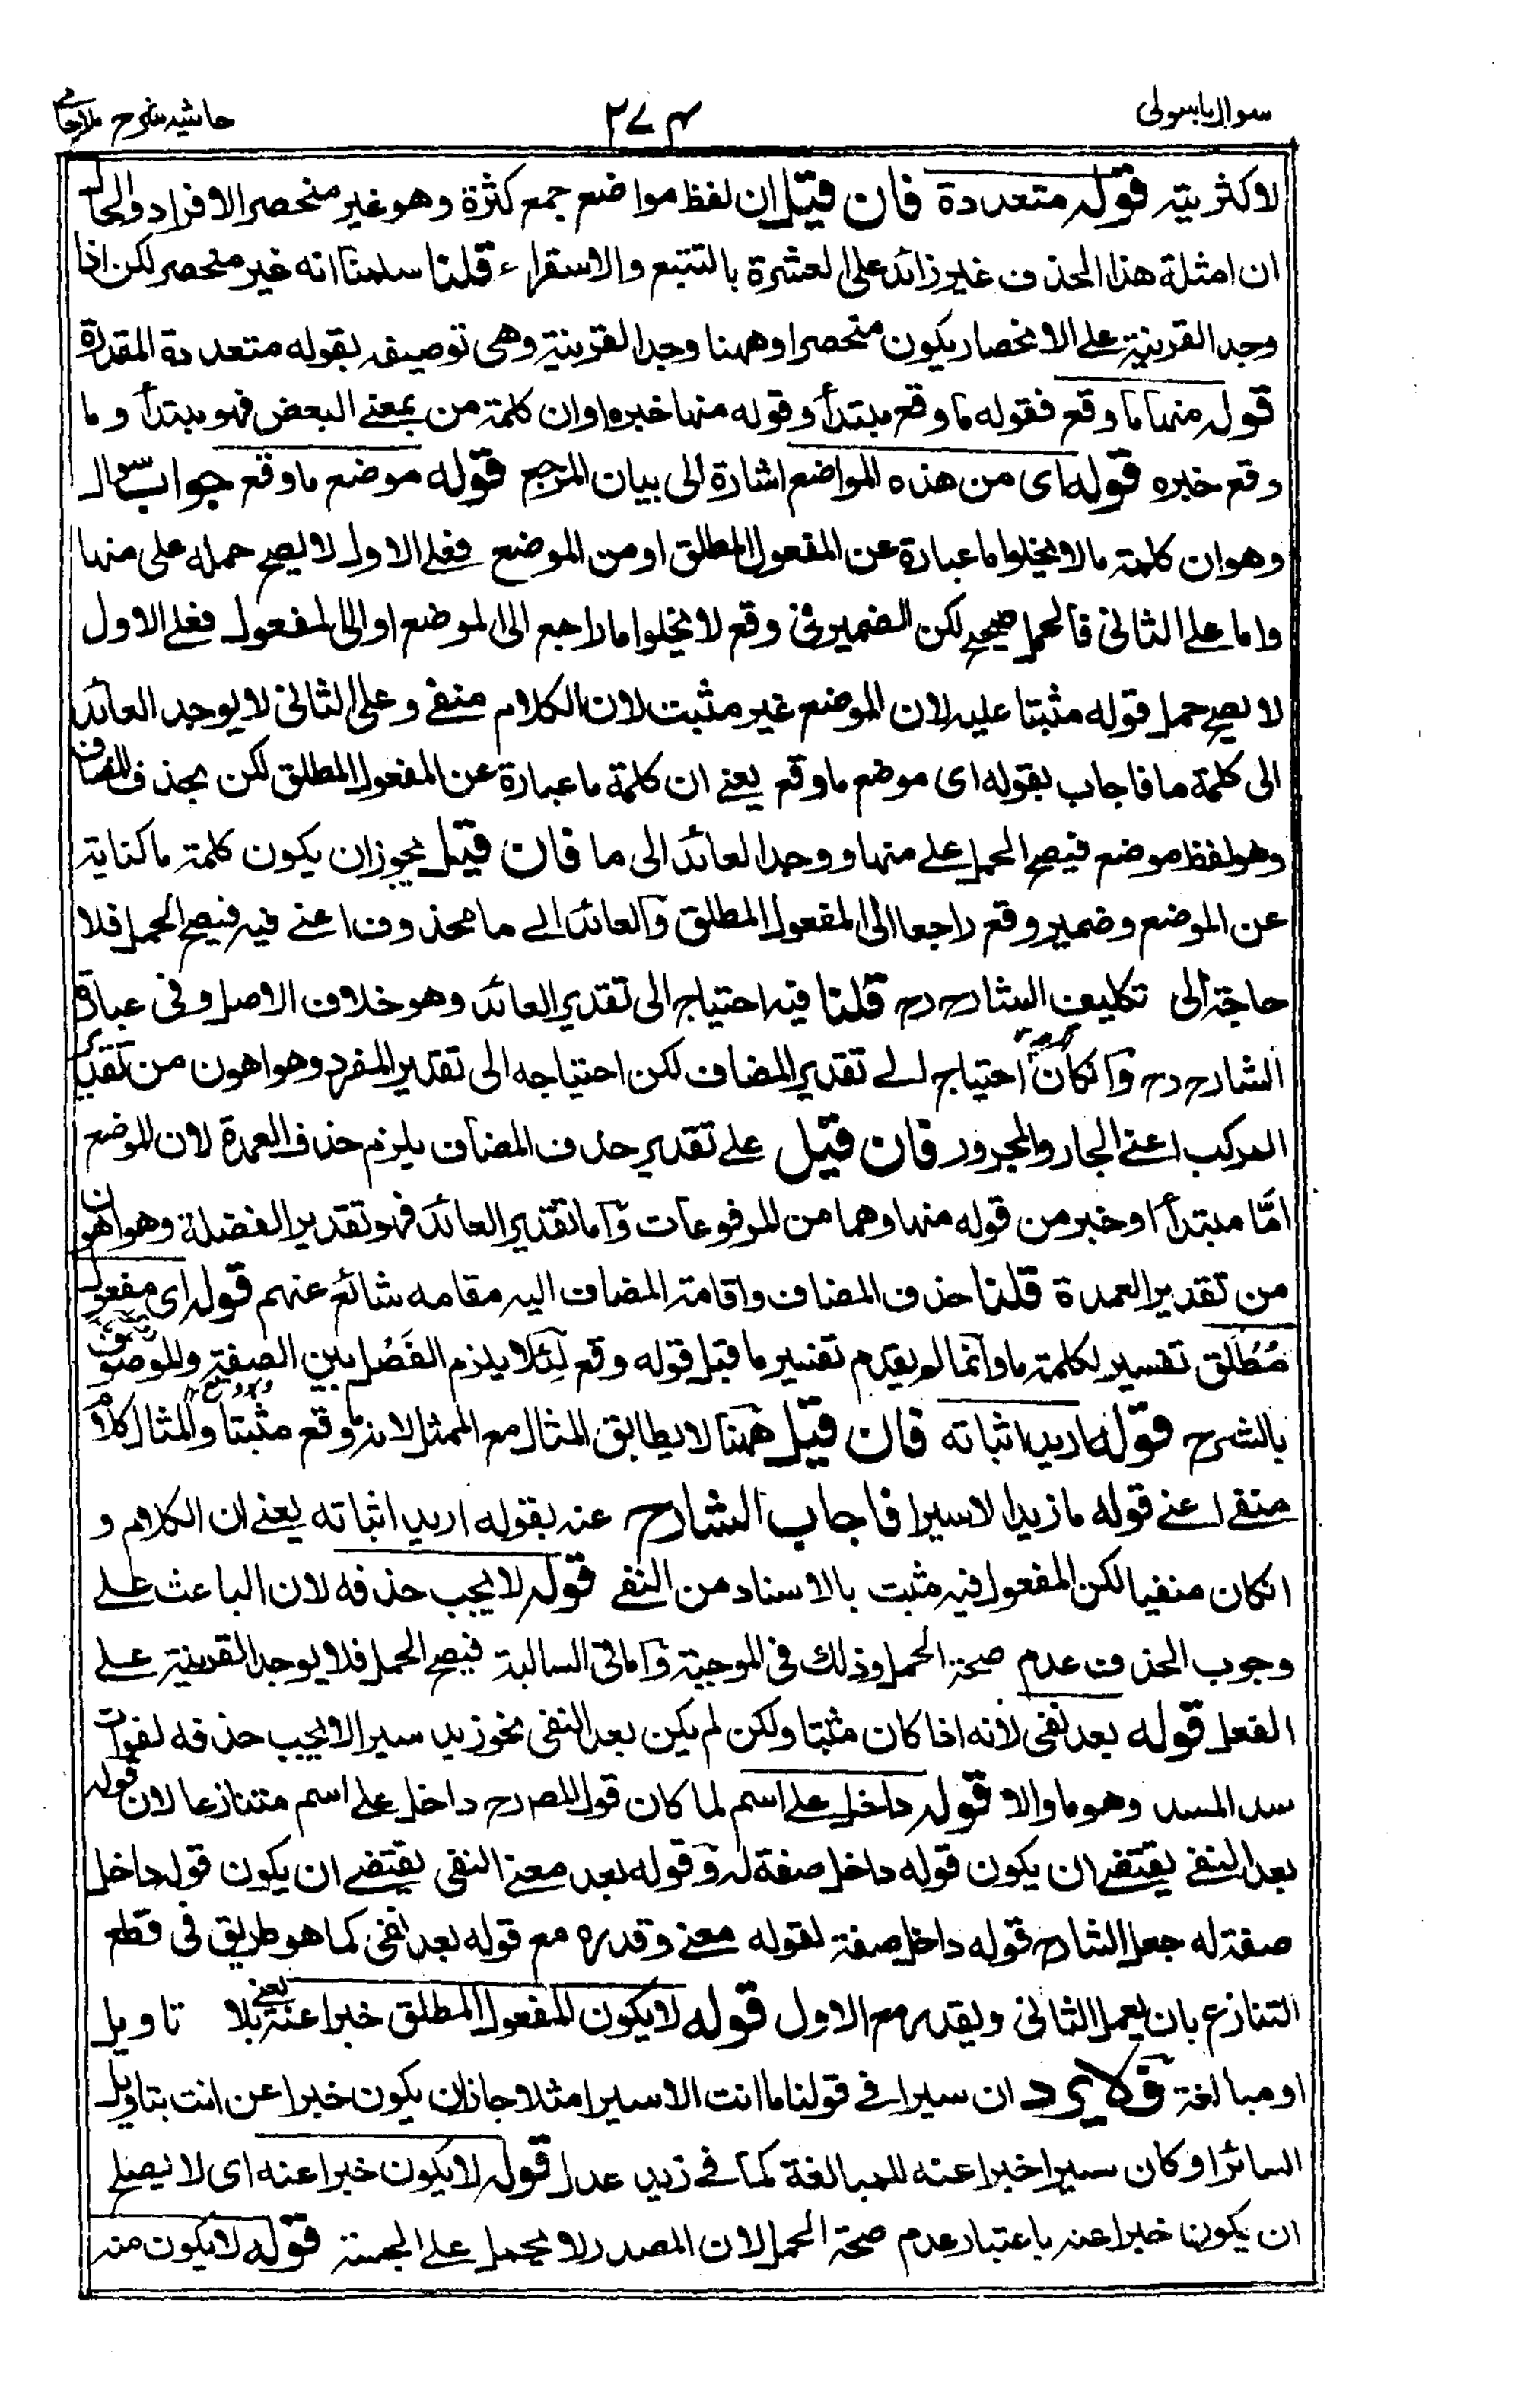 سوال باسولی ٢٧٤ حاشیہ شرح ملا جامی
لاکثریتہ قولہ متعددة فان قیل ان لفظ مواضع جمع کثرة وھو غیر منحصر الافراد والحال
ان امثلة ھذا الحذف غیر زائد علی العشرة بالتتبع والاستقراء قلنا سلمنا انہ غیر منحصر لکن اذا
وجد القرینة علی الانحصار یکون منحصرا وھھنا وجد القرینة وھی توصیفہ بقولہ متعددة المقدرة
قولہ منھا ما وقع فقولہ ما وقع مبتدأ وقولہ منھا خبرہ او ان کلمة من بمعنے البعض فھو مبتدأ وما
وقع خبرہ قولہ ای من ھذہ المواضع اشارة الی بیان المرجع قولہ موضع ما وقع جواب سوال
وھو ان کلمة ما لا یخلوا ما عبارة عن المفعول المطلق او من الموضع فعلے الاول لا یصح حملہ علی منھا
واما علے الثانی فالحمل صحیح لکن الضمیر فی وقع لا یخلوا ما راجع الی الموضع او الی المفعول فعلے الاول
لا یصح حمل قولہ مثبتا علیہ لان الموضع غیر مثبت لان الکلام منفے وعلی الثانی لا یوجد العائد
الی کلمة ما فاجاب بقولہ ای موضع ما وقع یعنے ان کلمة ما عبارة عن المفعول المطلق لکن بحذف المضاف
وھو لفظ موضع فیصح الحمل علے منھا ووجد العائد الی ما فان قیل یجوز ان یکون کلمة ما کنایة
عن الموضع وضمیر وقع راجعا الی المفعول المطلق والعائد الے ما محذوف اعنے فیہ فیصح الحمل فلا
حاجة الی تکلیف الشارح رح قلنا فیہ احتیاج الی تقدیر العائد وھو خلاف الاصل وفی عبارة
الشارح رح وانکان احتیاج الے تقدیر المضاف لکن احتیاجہ الی تقدیر المفرد وھو اھون من تقدیر
المرکب اعنے الجار والمجرور فان قیل علے تقدیر حذف المضاف یلزم حذف العمدة لان الموضع
امّا مبتدأ او خبر من قولہ منھا وھما من المرفوعات واما تقدیر العائد فھو تقدیر الفضلة وھو اھون
من تقدیر العمدة قلنا حذف المضاف واقامة المضاف الیہ مقامہ شائع عنھم قولہ ای مفعول
مُطلَق تفسیر لکلمة ما وانما لم یقدم تفسیر ما قبل قولہ وقع لئلا یلزم الفَصْل بین الصفة والموصوف
بالشرح قولہ ارید اثباتہ فان قیل ھھنا لا یطابق المثال مع الممثل لانہ ما وقع مثبتا والمثال کلام
منفے اعنے قولہ ما زید الا سیرا فاجاب الشارح عنہ بقولہ ارید اثباتہ یعنے ان الکلام و
انکان منفیا لکن المفعول فیہ مثبت بالاسناد من النفے قولہ لا یجب حذفہ لان الباعث علے
وجوب الحذف عدم صحة الحمل وذلک فی الموجبة واما فی السالبة فیصح الحمل فلا یوجد القرینة علے
الفعل قولہ بعد نفی لانہ اذا کان مثبتا ولکن لم یکن بعد النفی نحو زید سیرا لا یجب حذفہ لفوات
سد المسد وھو ما والا قولہ داخل علے اسم لما کان قول المصہ رح داخل علے اسم متنازعا لان قولہ
بعد النفے یقتضے ان یکون قولہ داخل صفة لہ وقولہ بعد معنے النفی یقتضے ان یکون قولہ داخل
صفة لہ جعل الشارح قولہ داخل صفة لقولہ معنے وقدرہ مع قولہ بعد نفی کما ھو طریق فی قطع
التنازع بان یعمل الثانی ویقدر مع الاول قولہ لا یکون المفعول المطلق خبرا عنہ یعنے بلا تاویل
او مبالغة فلا یرد ان سیرا فے قولنا ما انت الا سیرا مثلا جاز ان یکون خبرا عن انت بتاویل
السائر او کان سیرا خبرا عنہ للمبالغة کما فے زید عدل قولہ لا یکون خبرا عنہ ای لا یصلح
ان یکون خبرا عنہ باعتبار عدم صحة الحمل لان المصدر لا یحمل علے الجثة قولہ لا یکون منہ